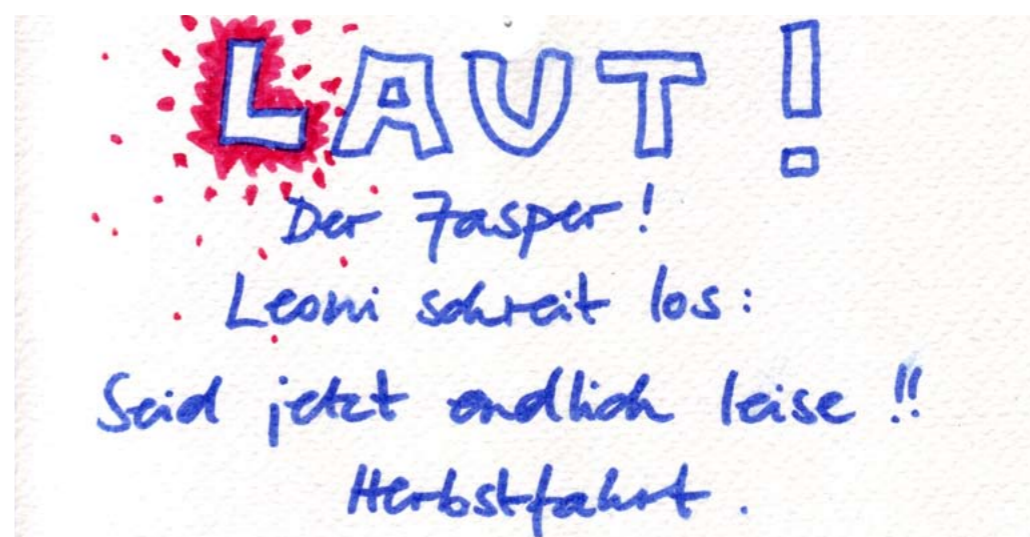 LAUT!
Der Jasper!
Leoni schreit los:
Seid jetzt endlich leise!!
Herbstfahrt.